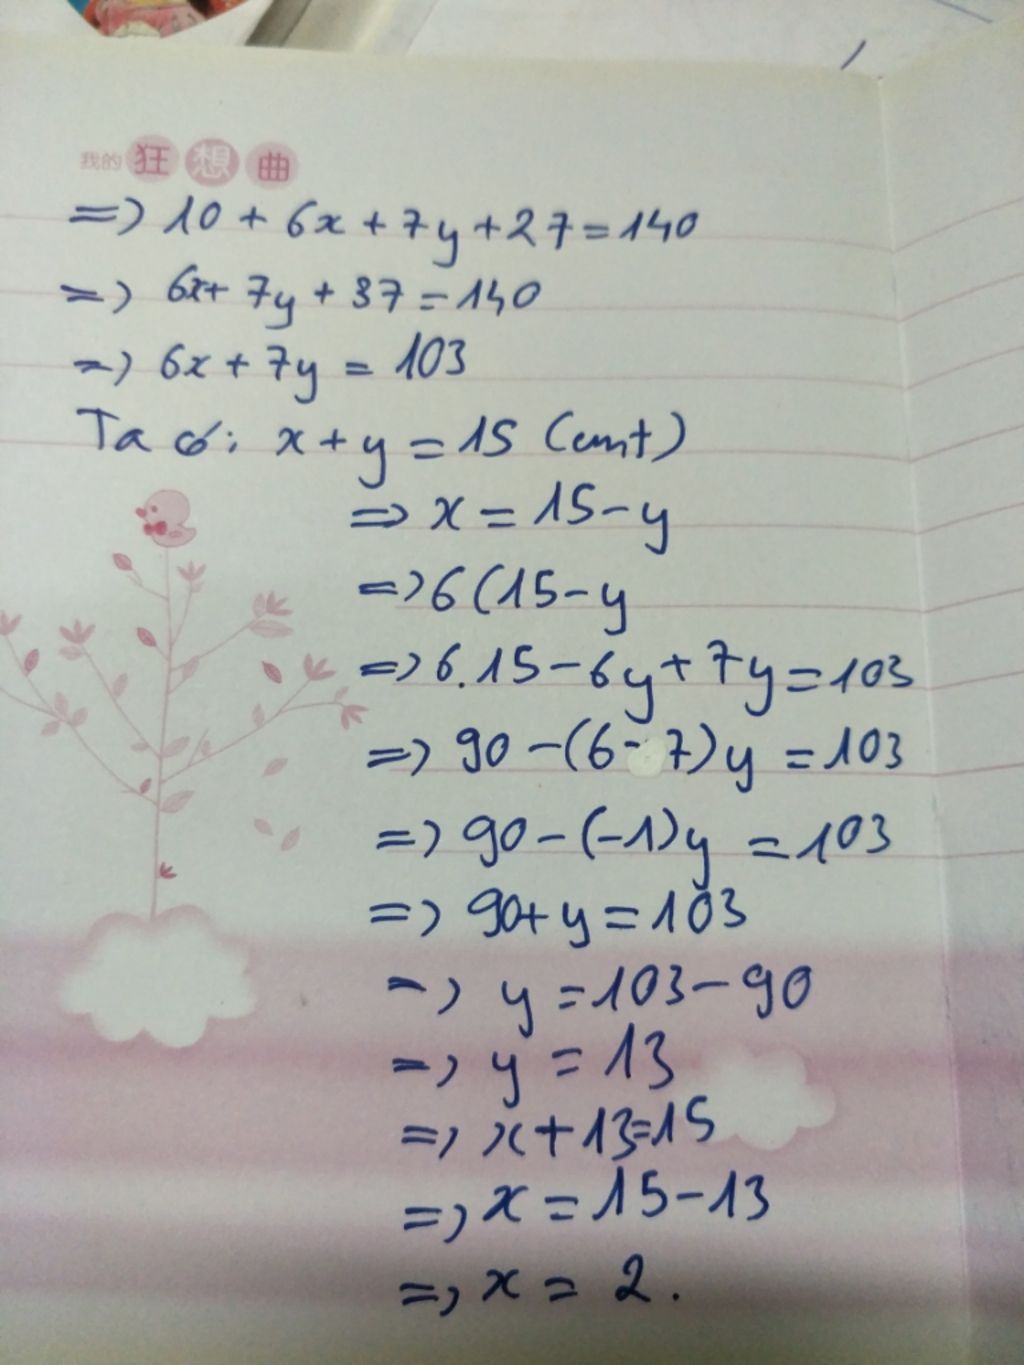 我的狂想曲
=> 10 + 6x + 7y + 27 = 140
=> 6x + 7y + 37 = 140
=> 6x + 7y = 103
Ta có: x + y = 15 (cmt)
=> x = 15 - y
=> 6(15 - y
=> 6.15 - 6y + 7y = 103
=> 90 - (6 - 7)y = 103
=> 90 - (-1)y = 103
=> 90 + y = 103
=> y = 103 - 90
=> y = 13
=> x + 13 = 15
=> x = 15 - 13
=> x = 2.